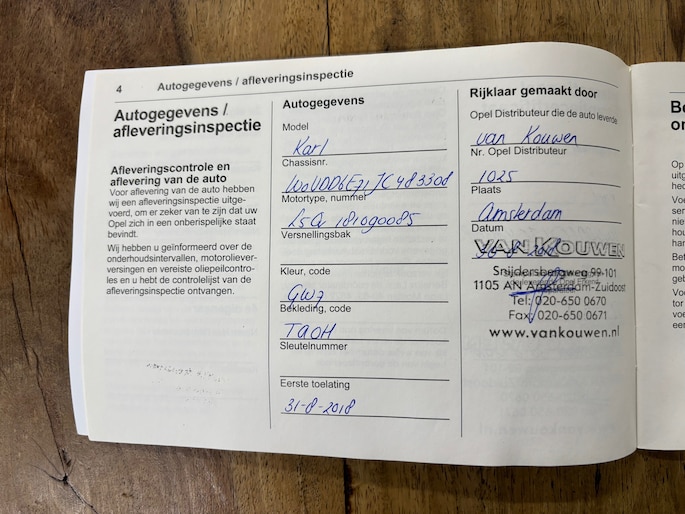 4 Autogegevens / afleveringsinspectie
Autogegevens /
afleveringsinspectie
Afleveringscontrole en
aflevering van de auto
Voor aflevering van de auto hebben
wij een afleveringsinspectie uitge-
voerd, om er zeker van te zijn dat uw
Opel zich in een onberispelijke staat
bevindt.
Wij hebben u geïnformeerd over de
onderhoudsintervallen, motorolie­ver-
versingen en vereiste oliepeilcontro-
les en u hebt de controlelijst van de
afleveringsinspectie ontvangen.
Autogegevens
Model
Karl
Chassisnr.
Motortype, nummer
Versnellingsbak
Kleur, code
GWJ
Bekleding, code
TAOH
Sleutelnummer
Eerste toelating
31-8-2018
Rijklaar gemaakt door
Opel Distributeur die de auto leverde
van Kouwen
Nr. Opel Distributeur
1025
Plaats
Amsterdam
Datum
VAN KOUWEN
Snijdersbergweg 99-101
1105 AN Amsterdam-Zuidoost
Tel: 020-650 0670
Fax: 020-650 0671
www.vankouwen.nl